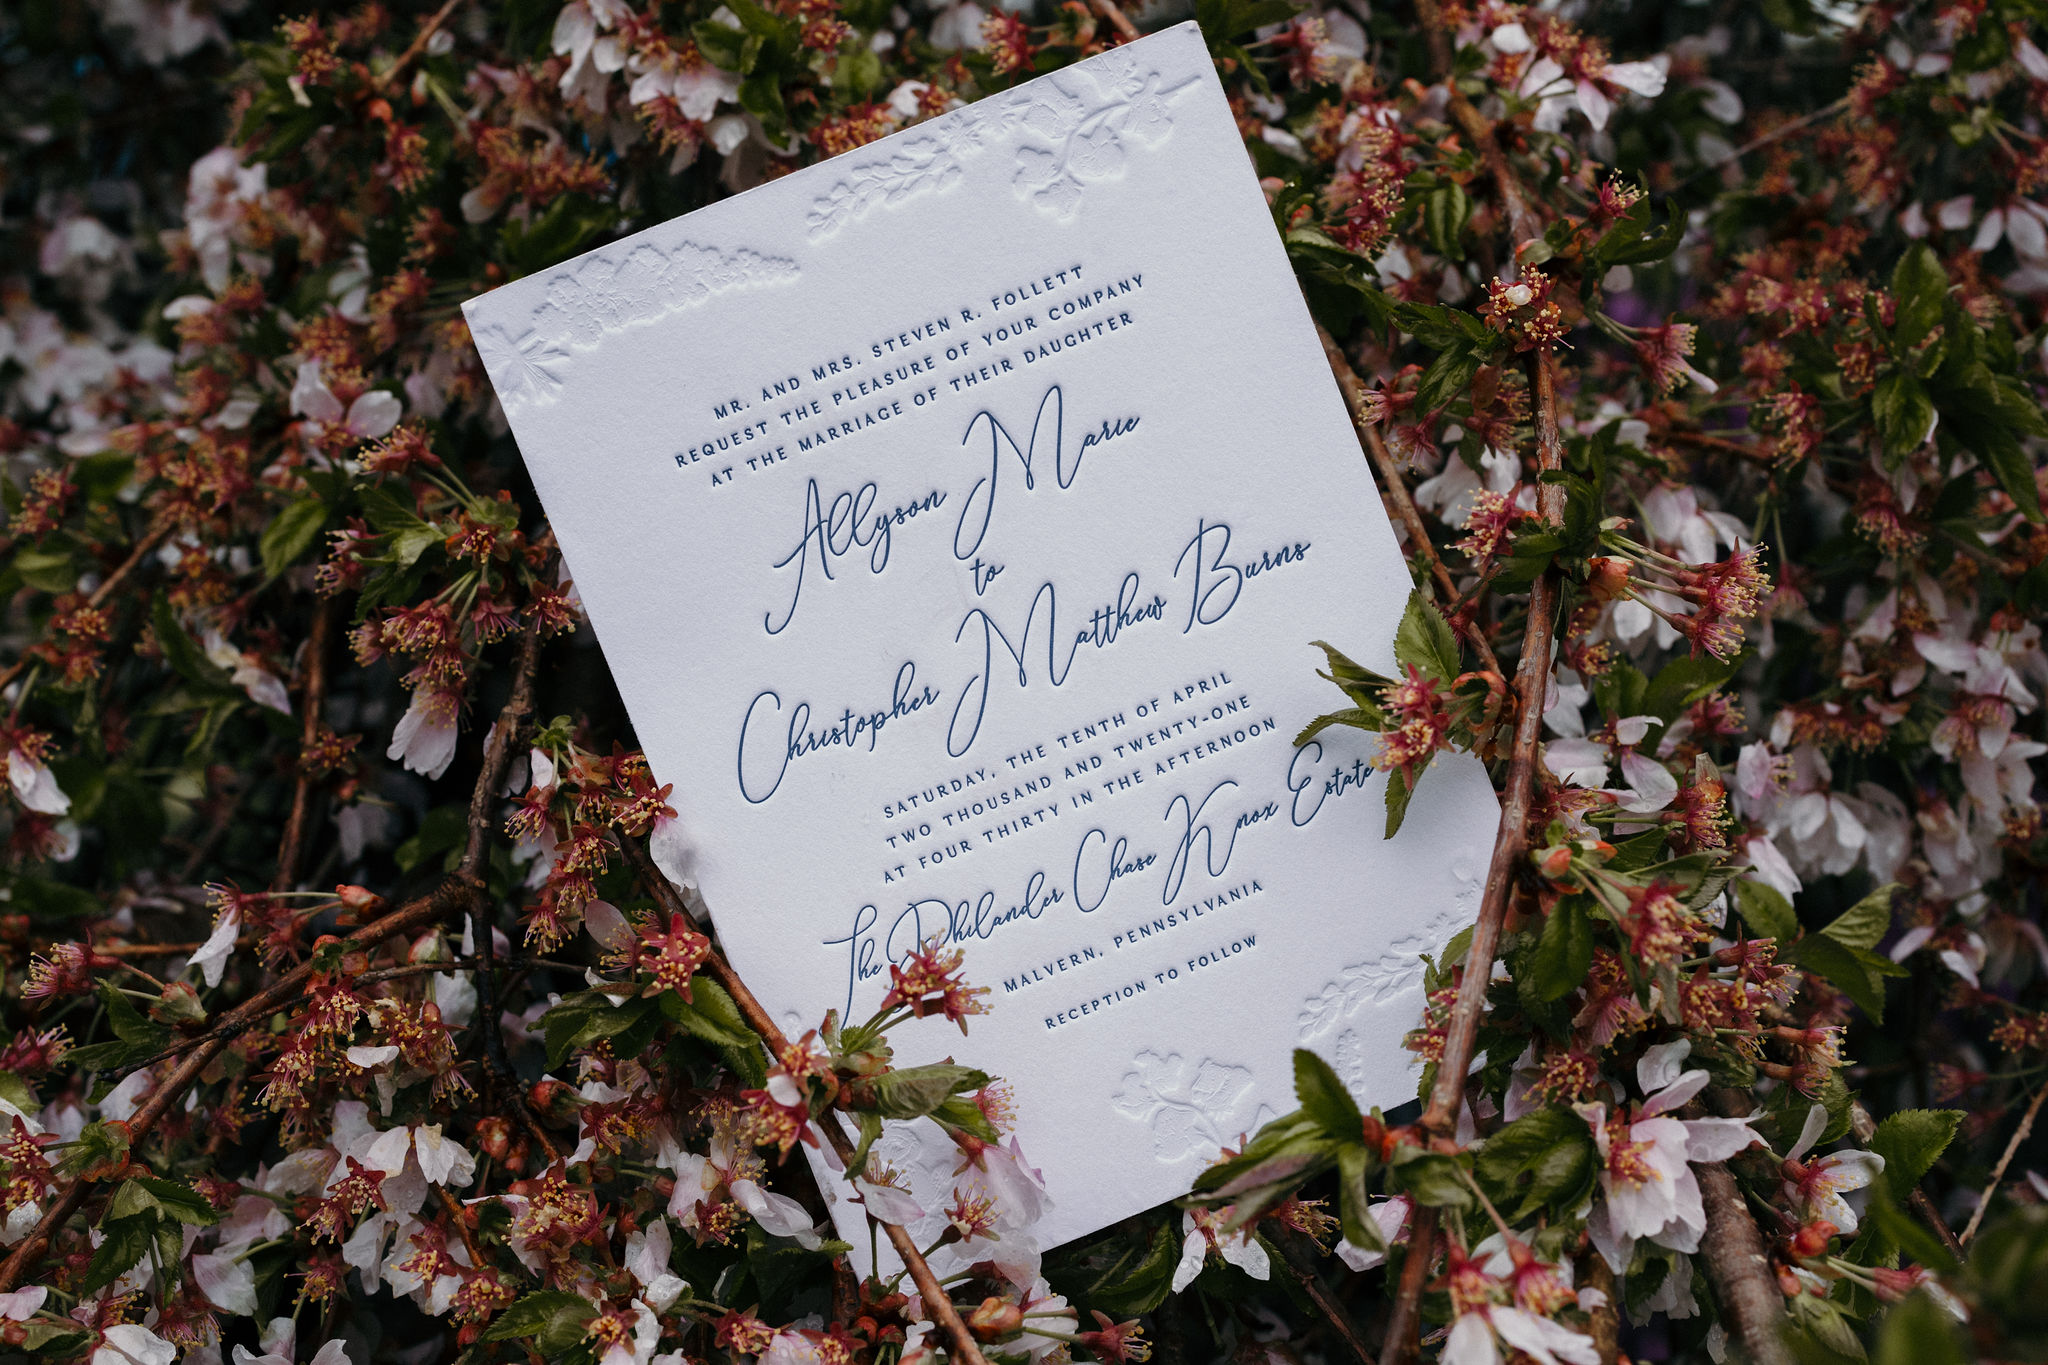 MR. AND MRS. STEVEN R. FOLLETT
REQUEST THE PLEASURE OF YOUR COMPANY
AT THE MARRIAGE OF THEIR DAUGHTER
Allyson Marie
to
Christopher Matthew Burns
SATURDAY, THE TENTH OF APRIL
TWO THOUSAND AND TWENTY-ONE
AT FOUR THIRTY IN THE AFTERNOON
The Philander Chase Knox Estate
MALVERN, PENNSYLVANIA
RECEPTION TO FOLLOW